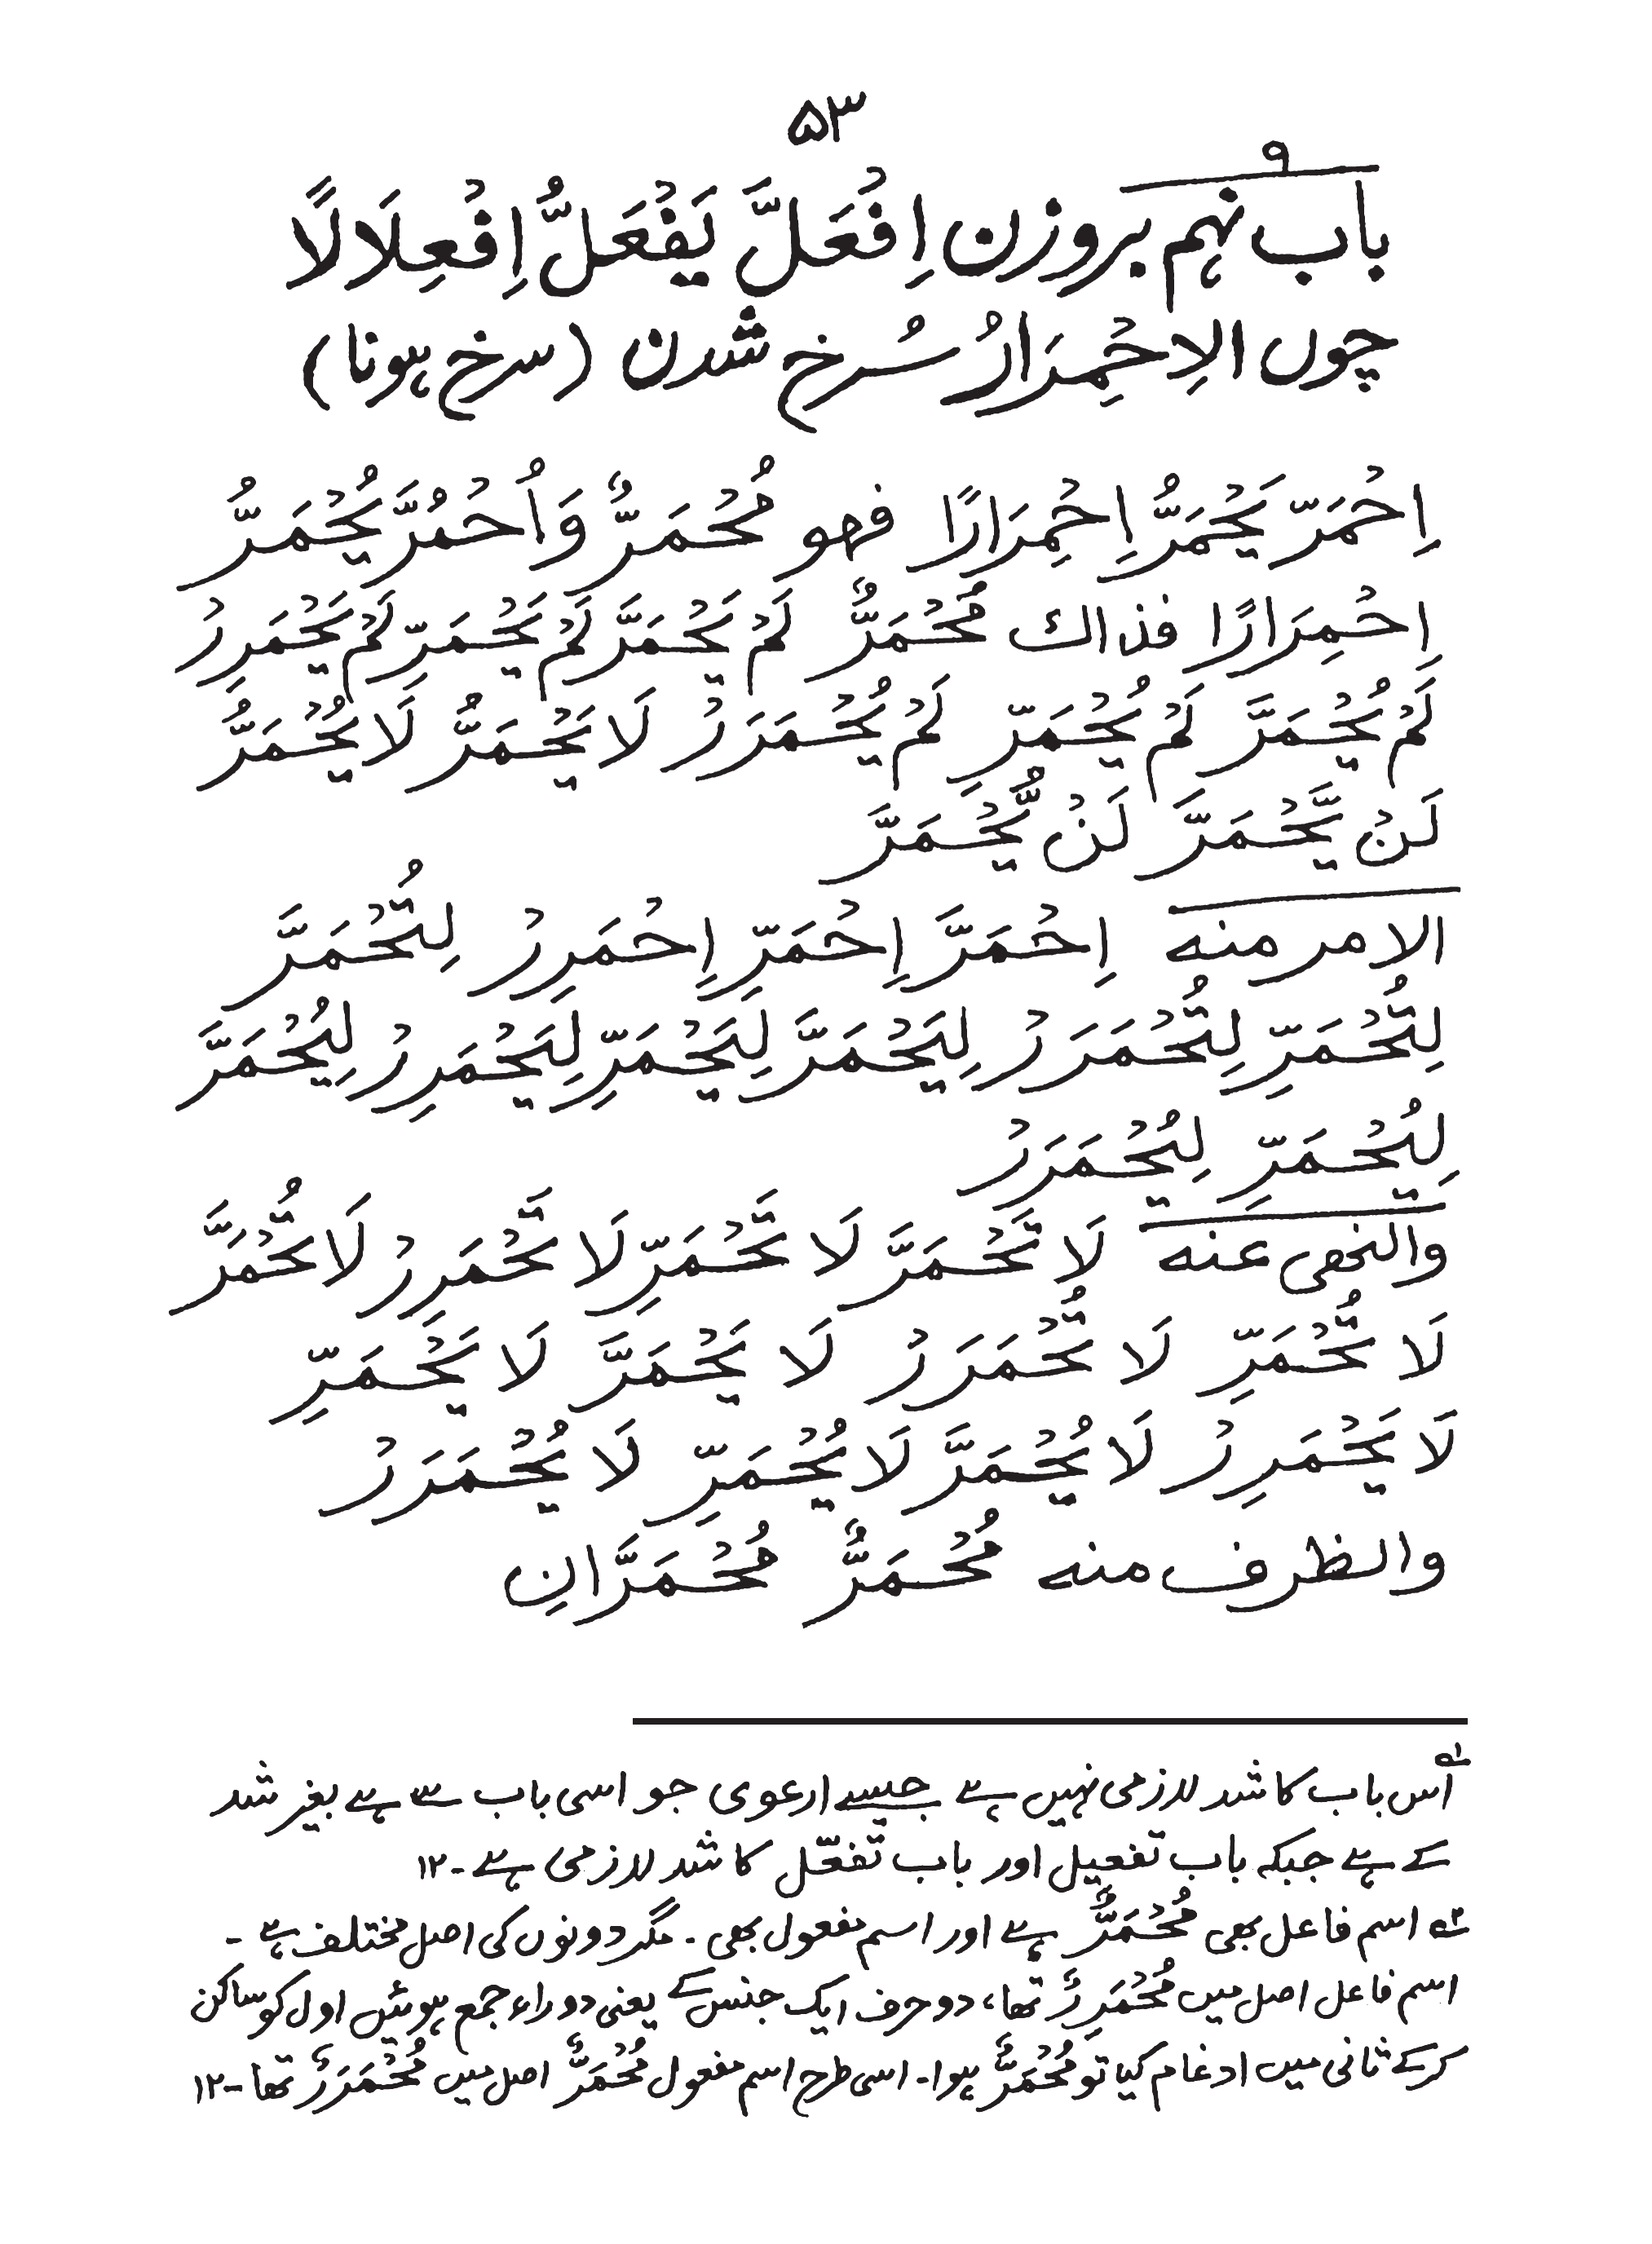 ۵۳
۹
باب نہم بروزن اِفْعَلَّ یَفْعَلُّ اِفْعِلَالًا
چوں الِاحْمِرَارُ سُرخ شدن (سرخ ہونا)
اِحْمَرَّ یَحْمَرُّ اِحْمِرَارًا فهو مُحْمَرٌّ وَاُحْمُرَّ یُحْمَرُّ
اِحْمِرَارًا فذاك مُحْمَرٌّ لَمْ یَحْمَرَّ لَمْ یَحْمَرِّ لَمْ یَحْمَرِرْ
لَمْ یُحْمَرَّ لَمْ یُحْمَرِّ لَمْ یُحْمَرَرْ لَا یَحْمَرُّ لَا یُحْمَرُّ
لَنْ یَّحْمَرَّ لَنْ یُّحْمَرَّ
الامر منه اِحْمَرَّ اِحْمَرِّ اِحْمَرِرْ لِتُحْمَرَّ
لِتُحْمَرِّ لِتُحْمَرَرْ لِیَحْمَرَّ لِیَحْمَرِّ لِیَحْمَرِرْ لِیُحْمَرَّ
لِیُحْمَرِّ لِیُحْمَرَرْ
والنهی عنه لَا تَحْمَرَّ لَا تَحْمَرِّ لَا تَحْمَرِرْ لَا تُحْمَرَّ
لَا تُحْمَرِّ لَا تُحْمَرَرْ لَا یَحْمَرَّ لَا یَحْمَرِّ
لَا یَحْمَرِرْ لَا یُحْمَرَّ لَا یُحْمَرِّ لَا یُحْمَرَرْ
والظرف منه مُحْمَرٌّ مُحْمَرَّانِ
؎۱ اس باب کا شد لازمی نہیں ہے جیسے ارعوی جو اسی باب سے ہے بغیر شد
کے ہے جبکہ باب تفعیل اور باب تفعّل کا شد لازمی ہے ۔۱۲
؎۲ اسم فاعل بھی مُحْمَرٌّ ہے اور اسم مفعول بھی ۔ مگر دونوں کی اصل مختلف ہے ۔
اسم فاعل اصل میں مُحْمَرِرٌ تھا، دو حرف ایک جنس کے یعنی دو راء جمع ہوئیں اول کو ساکن
کرکے ثانی میں ادغام کیا تو مُحْمَرٌّ ہوا۔ اسی طرح اسم مفعول مُحْمَرٌّ اصل میں مُحْمَرَرٌ تھا ۔۱۲